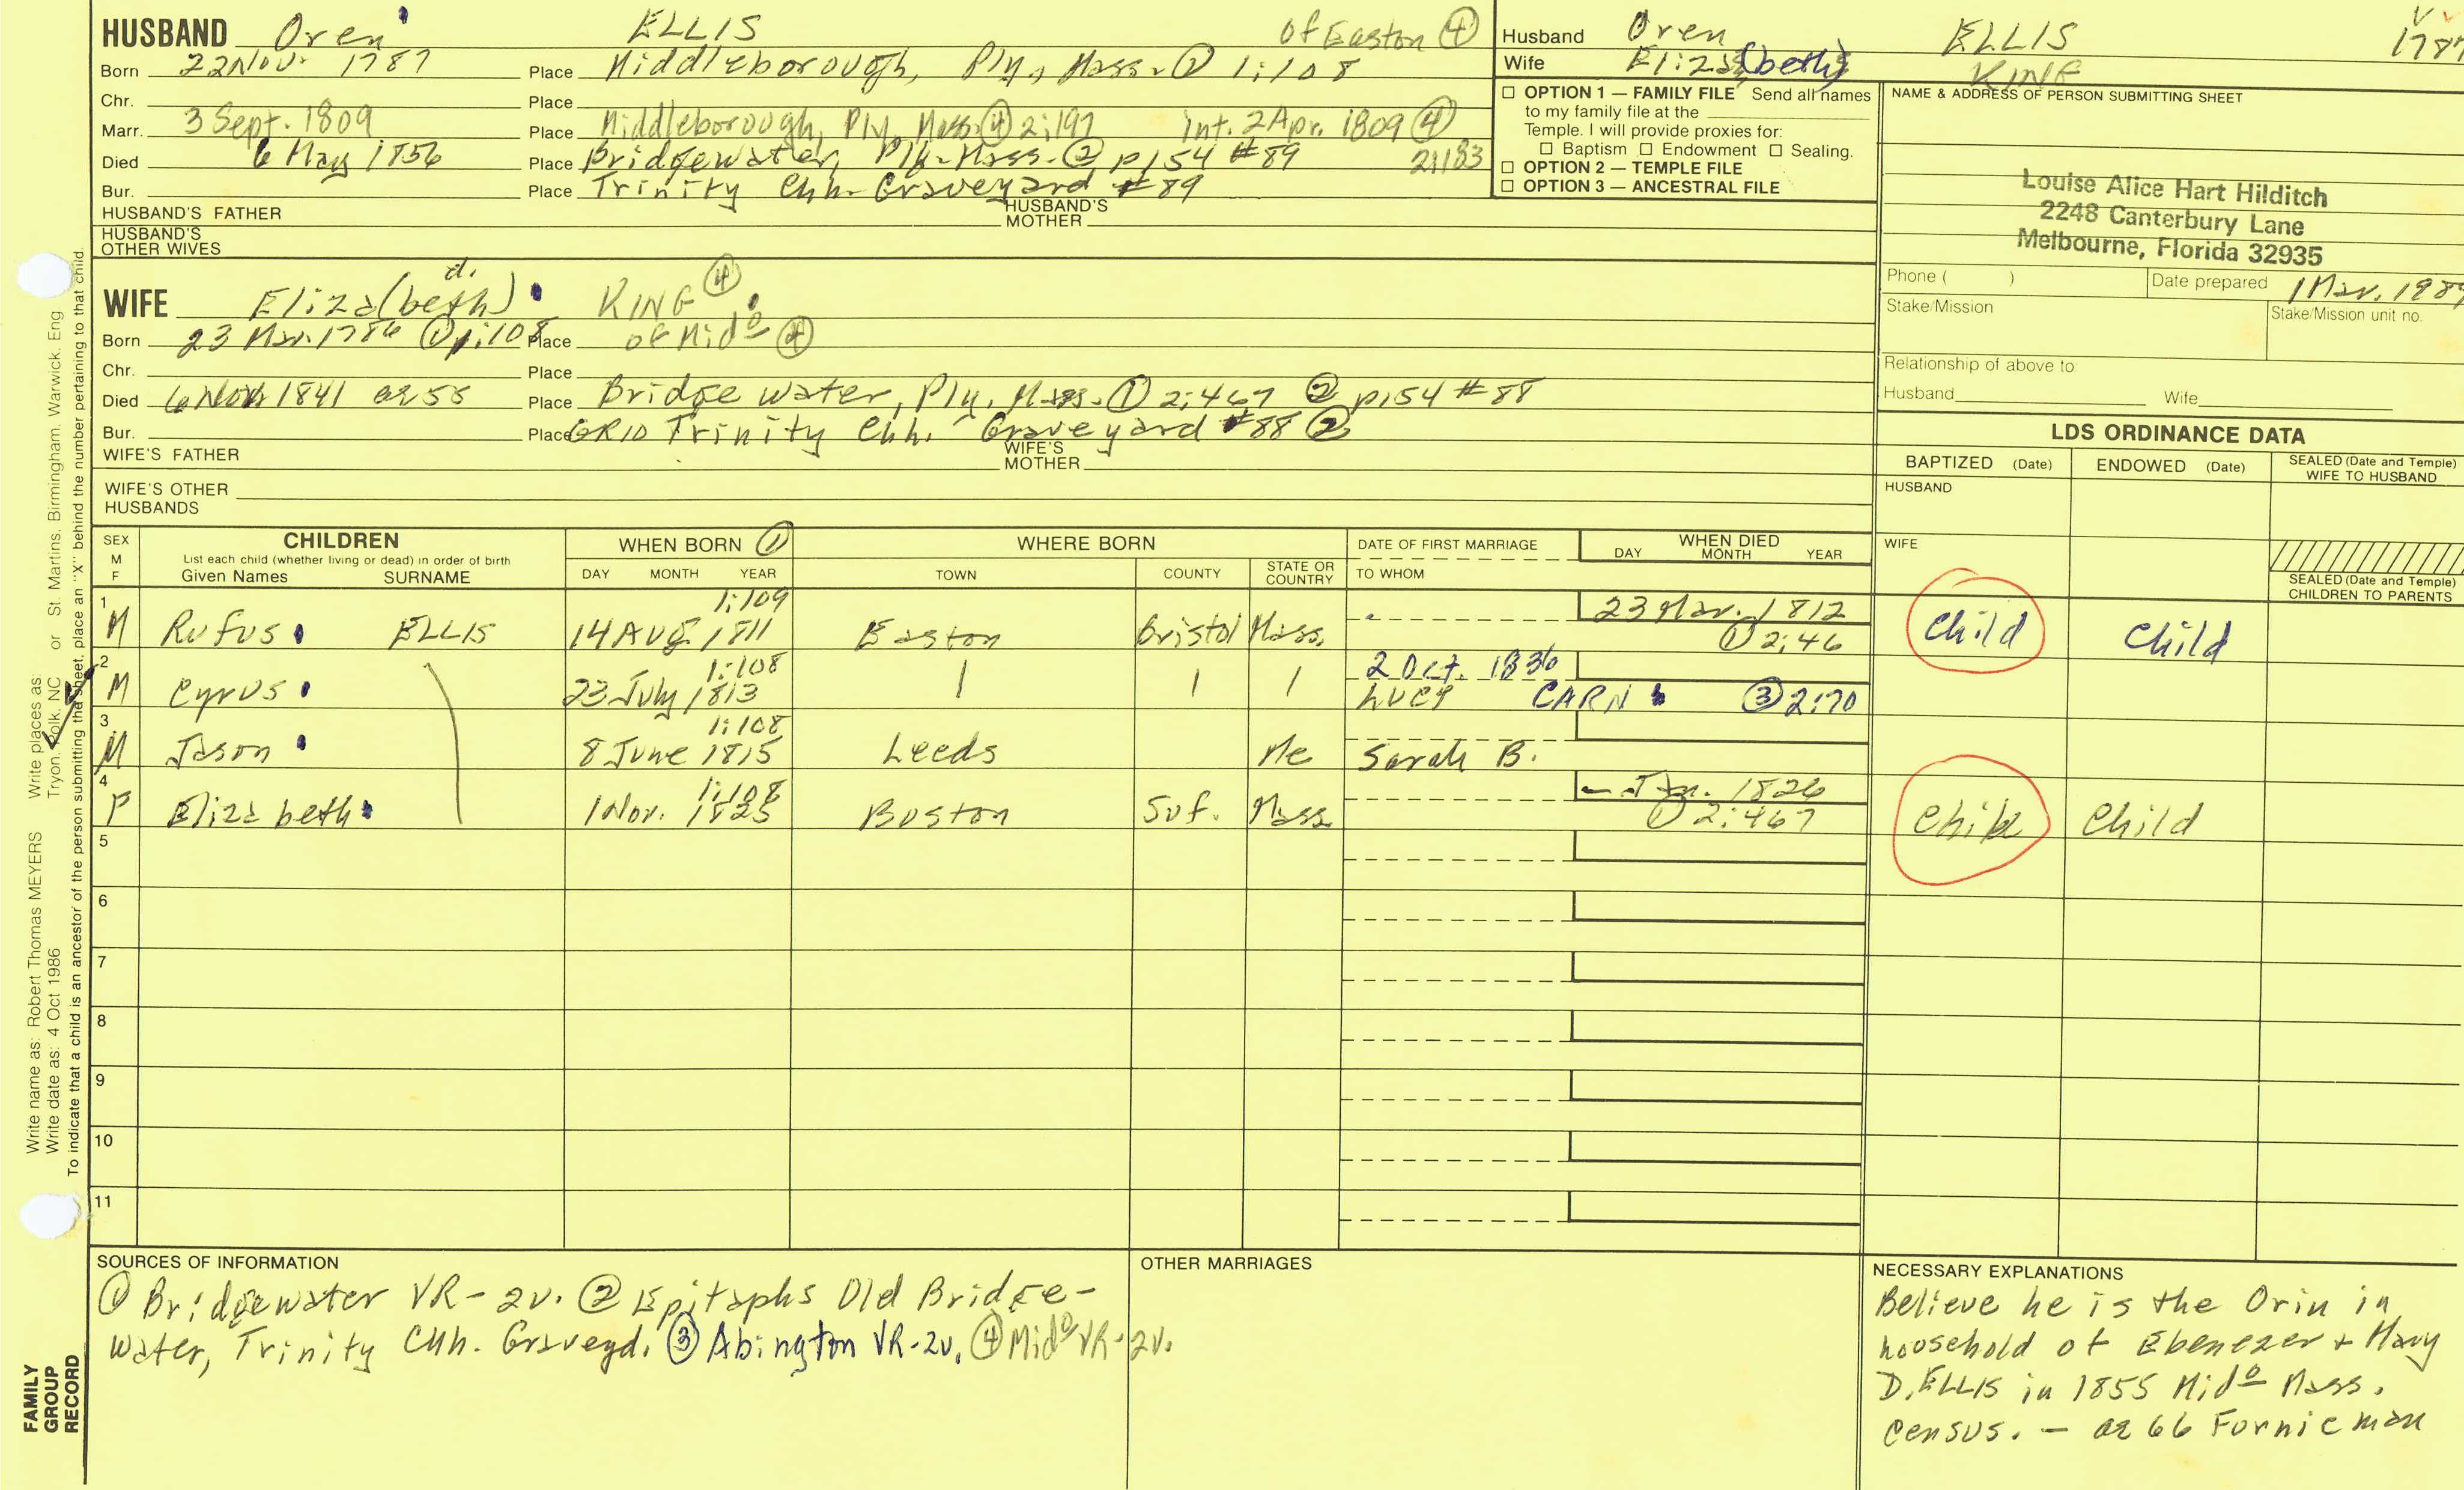 HUSBAND Oren ELLIS of Easton ④
Born 22 Nov. 1787 Place Middleborough, Ply, Mass. ① 1:108
Chr. Place
Marr. 3 Sept. 1809 Place Middleborough, Ply, Mass. ④ 2:197 Int. 2 Apr. 1809 ④
Died 6 May 1856 Place Bridgewater, Ply. Mass. ② p154 #89 2:183
Bur. Place Trinity Chh. Graveyard #89
HUSBAND'S FATHER HUSBAND'S MOTHER
HUSBAND'S OTHER WIVES
WIFE Eliza(beth) d. KING ④
Born 23 Mar. 1786 ① p1:108 Place of Mido ④
Chr. Place
Died 6 Nov 1841 ae 55 Place Bridgewater, Ply. Mass. ① 2:467 ② p154 #88
Bur. Place GR10 Trinity Chh. Graveyard #88 ②
WIFE'S FATHER WIFE'S MOTHER
WIFE'S OTHER HUSBANDS
Husband Oren ELLIS
Wife Eliza(beth) KING
☐ OPTION 1 — FAMILY FILE Send all names
to my family file at the
Temple. I will provide proxies for:
☐ Baptism ☐ Endowment ☐ Sealing.
☐ OPTION 2 — TEMPLE FILE
☐ OPTION 3 — ANCESTRAL FILE
NAME & ADDRESS OF PERSON SUBMITTING SHEET
Louise Alice Hart Hilditch
2248 Canterbury Lane
Melbourne, Florida 32935
Phone ( ) Date prepared 1 Mar. 198
Stake/Mission Stake/Mission unit no.
Relationship of above to
Husband Wife
LDS ORDINANCE DATA
BAPTIZED (Date) ENDOWED (Date) SEALED (Date and Temple) WIFE TO HUSBAND
HUSBAND
WIFE
SEALED (Date and Temple) CHILDREN TO PARENTS
SEX M F
CHILDREN
List each child (whether living or dead) in order of birth
Given Names SURNAME
WHEN BORN ①
DAY MONTH YEAR
WHERE BORN
TOWN COUNTY STATE OR COUNTRY
DATE OF FIRST MARRIAGE
TO WHOM
WHEN DIED
DAY MONTH YEAR
1 1:109 23 Mar. 1812
M Rufus ELLIS 14 Aug 1811 Easton Bristol Mass. ① 2:46 Child Child
2 1:108 2 Oct. 1836
M Cyrus 23 July 1813 Lucy CARN ③ 2:70
3 1:108
M Jason 8 June 1815 Leeds Me Sarah B.
4 1:108 – Jan. 1826
F Elizabeth 1 Nov. 1825 Boston Suf. Mass. ① 2:467 Child Child
5
6
7
8
9
10
11
SOURCES OF INFORMATION
① Bridgewater VR-2v. ② Epitaphs Old Bridge-
water, Trinity Chh. Graveyd. ③ Abington VR-2v. ④ Mido VR-2v.
OTHER MARRIAGES
NECESSARY EXPLANATIONS
Believe he is the Orin in
household of Ebenezer + Mary
D. ELLIS in 1855 Mido Mass.
census. – ae 66 Fornieman
Write name as: Robert Thomas MEYERS Write places as: Tryon, Polk, NC or St. Martins, Birmingham, Warwick, Eng
Write date as: 4 Oct 1986
To indicate that a child is an ancestor of the person submitting the sheet, place an "X" behind the number pertaining to that child.
FAMILY
GROUP
RECORD